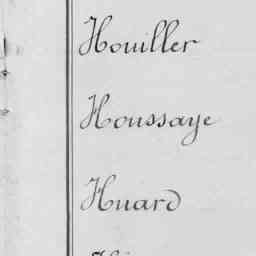 Houiller
Houssaye
Huard